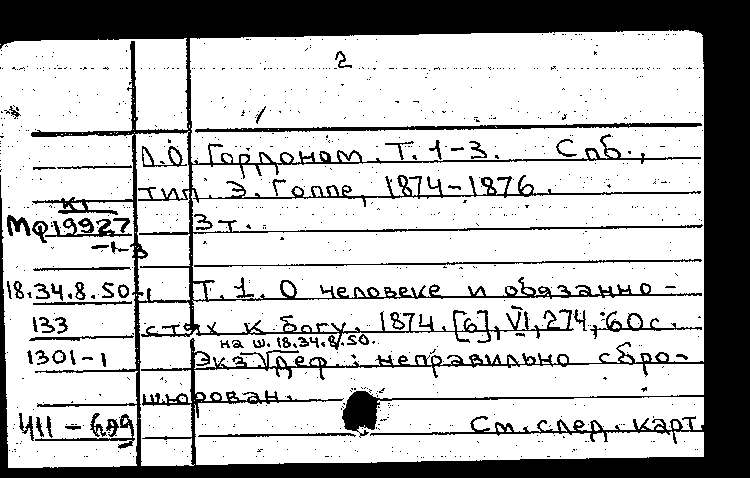 2
Л.О. Гордоном. Т. 1-3. Спб.,
тип. Э. Гоппе, 1874-1876.
К1
МФ19927 3 т.
-1-3
18.34.8.50-1 Т. 1. О человеке и обязанно-
133 стях к богу. 1874. [6], VI, 274, 60с.
на ш. 18.34.8.50.
1301-1 Экз √ деф.: неправильно сбро-
шюрован.
411-609 См. след. карт.